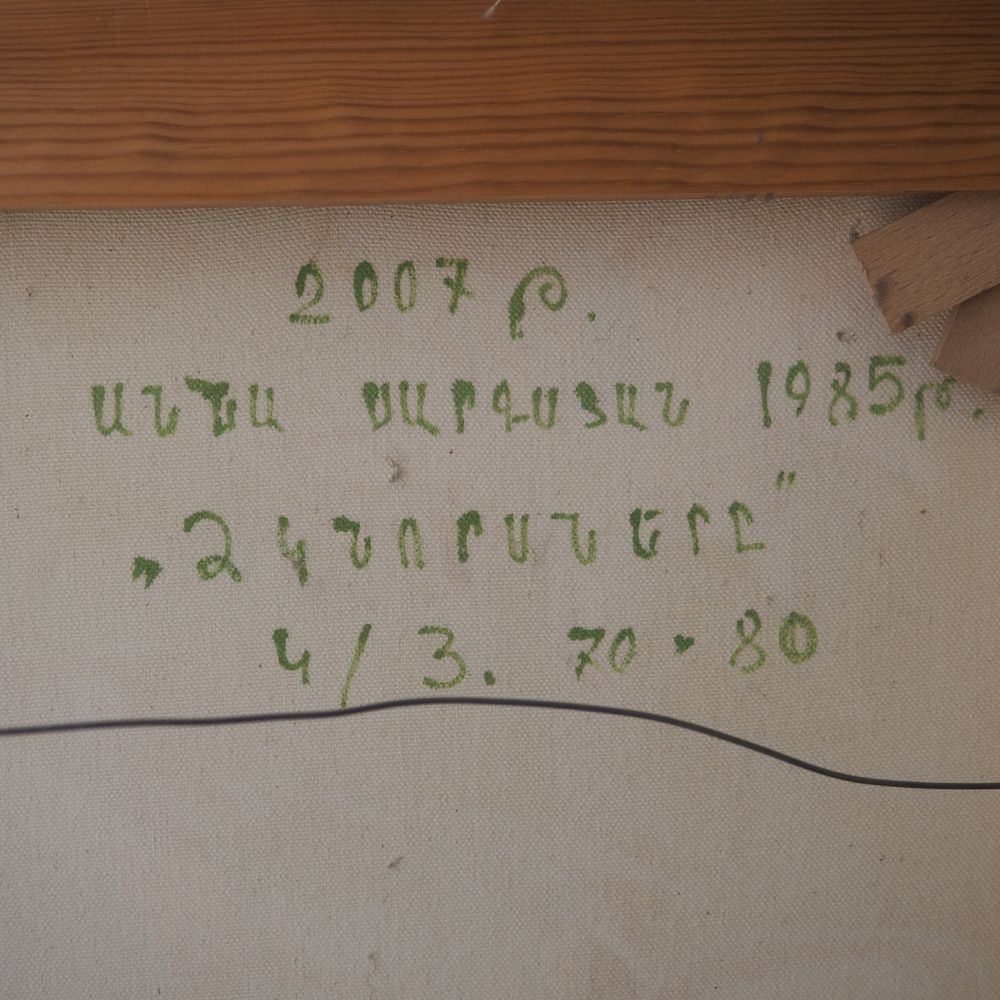 2007 թ.
ԱՆՆԱ ՍԱՐԳՍՅԱՆ 1985թ.
„ՁԿՆՈՐՍՆԵՐԸ”
Կ/Յ. 70·80